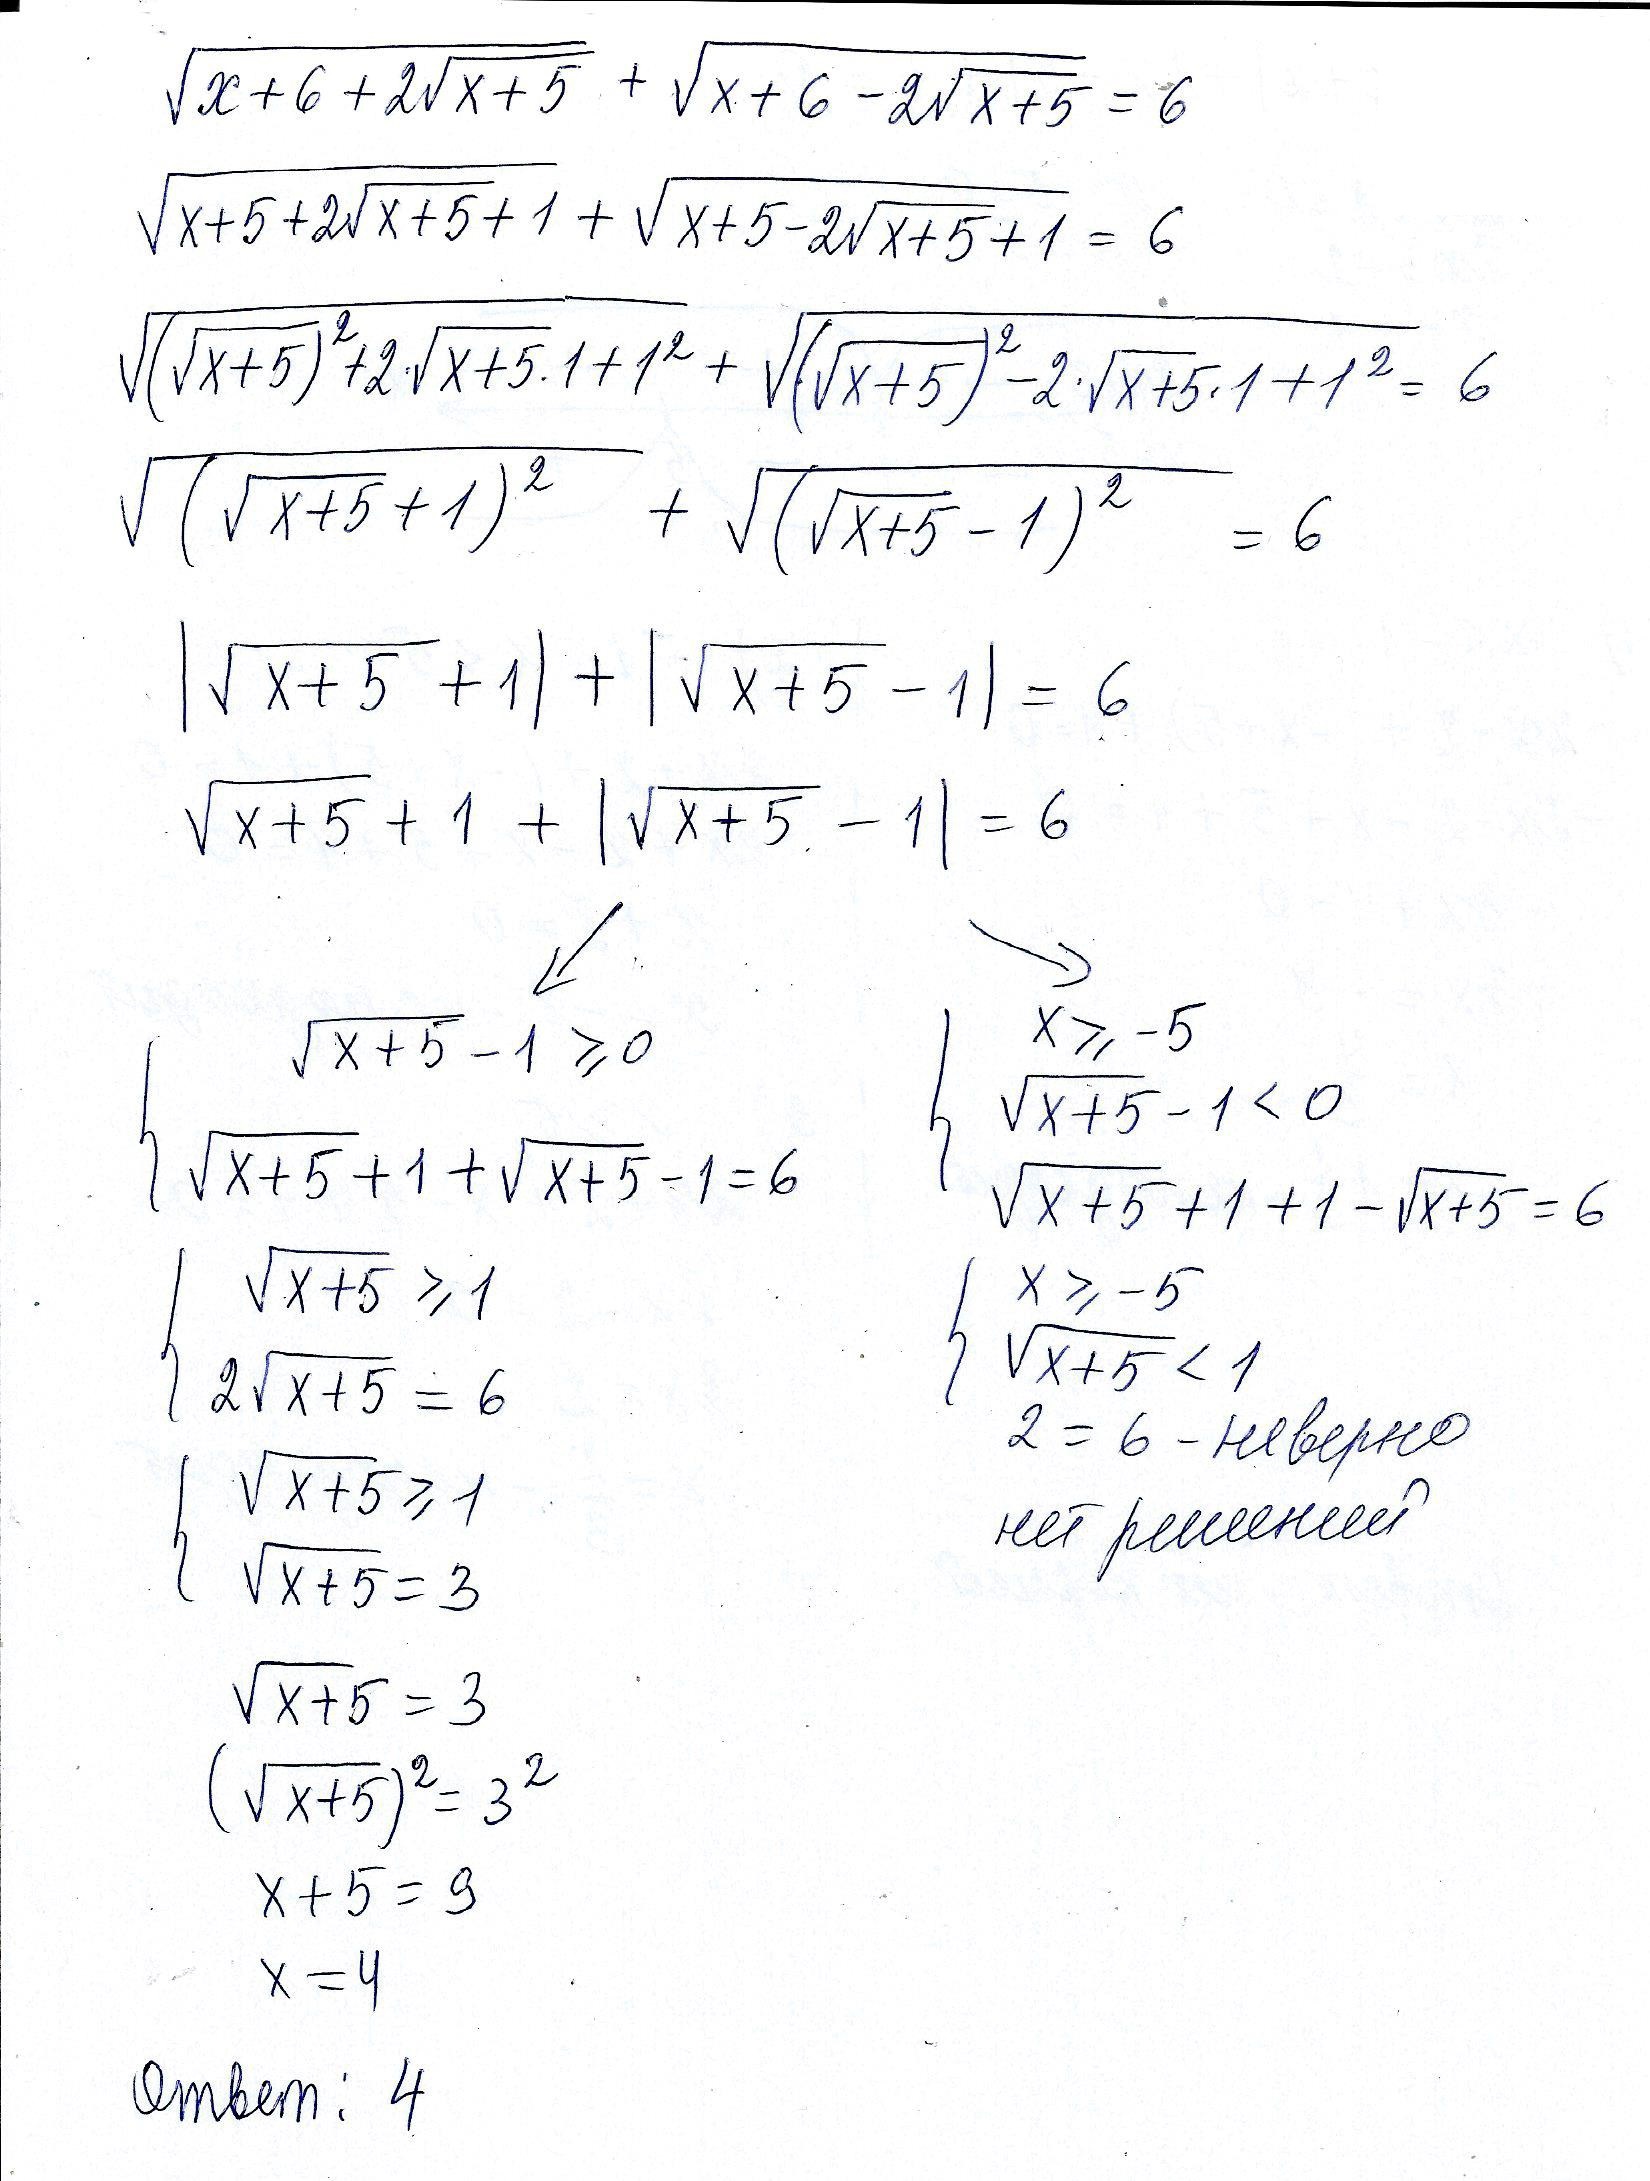 √(x+6+2√(x+5)) + √(x+6-2√(x+5)) = 6
√(x+5+2√(x+5)+1) + √(x+5-2√(x+5)+1) = 6
√((√(x+5))²+2·√(x+5)·1+1²) + √((√(x+5))²-2·√(x+5)·1+1²) = 6
√((√(x+5)+1)²) + √((√(x+5)-1)²) = 6
|√(x+5)+1| + |√(x+5)-1| = 6
√(x+5)+1 + |√(x+5)-1| = 6
√(x+5)-1 ⩾ 0
√(x+5)+1+√(x+5)-1=6
√(x+5) ⩾ 1
2√(x+5) = 6
√(x+5) ⩾ 1
√(x+5) = 3
√(x+5) = 3
(√(x+5))² = 3²
x+5 = 9
x = 4
x ⩾ -5
√(x+5)-1 < 0
√(x+5)+1+1-√(x+5)=6
x ⩾ -5
√(x+5) < 1
2 = 6 - неверно
нет решений
Ответ: 4